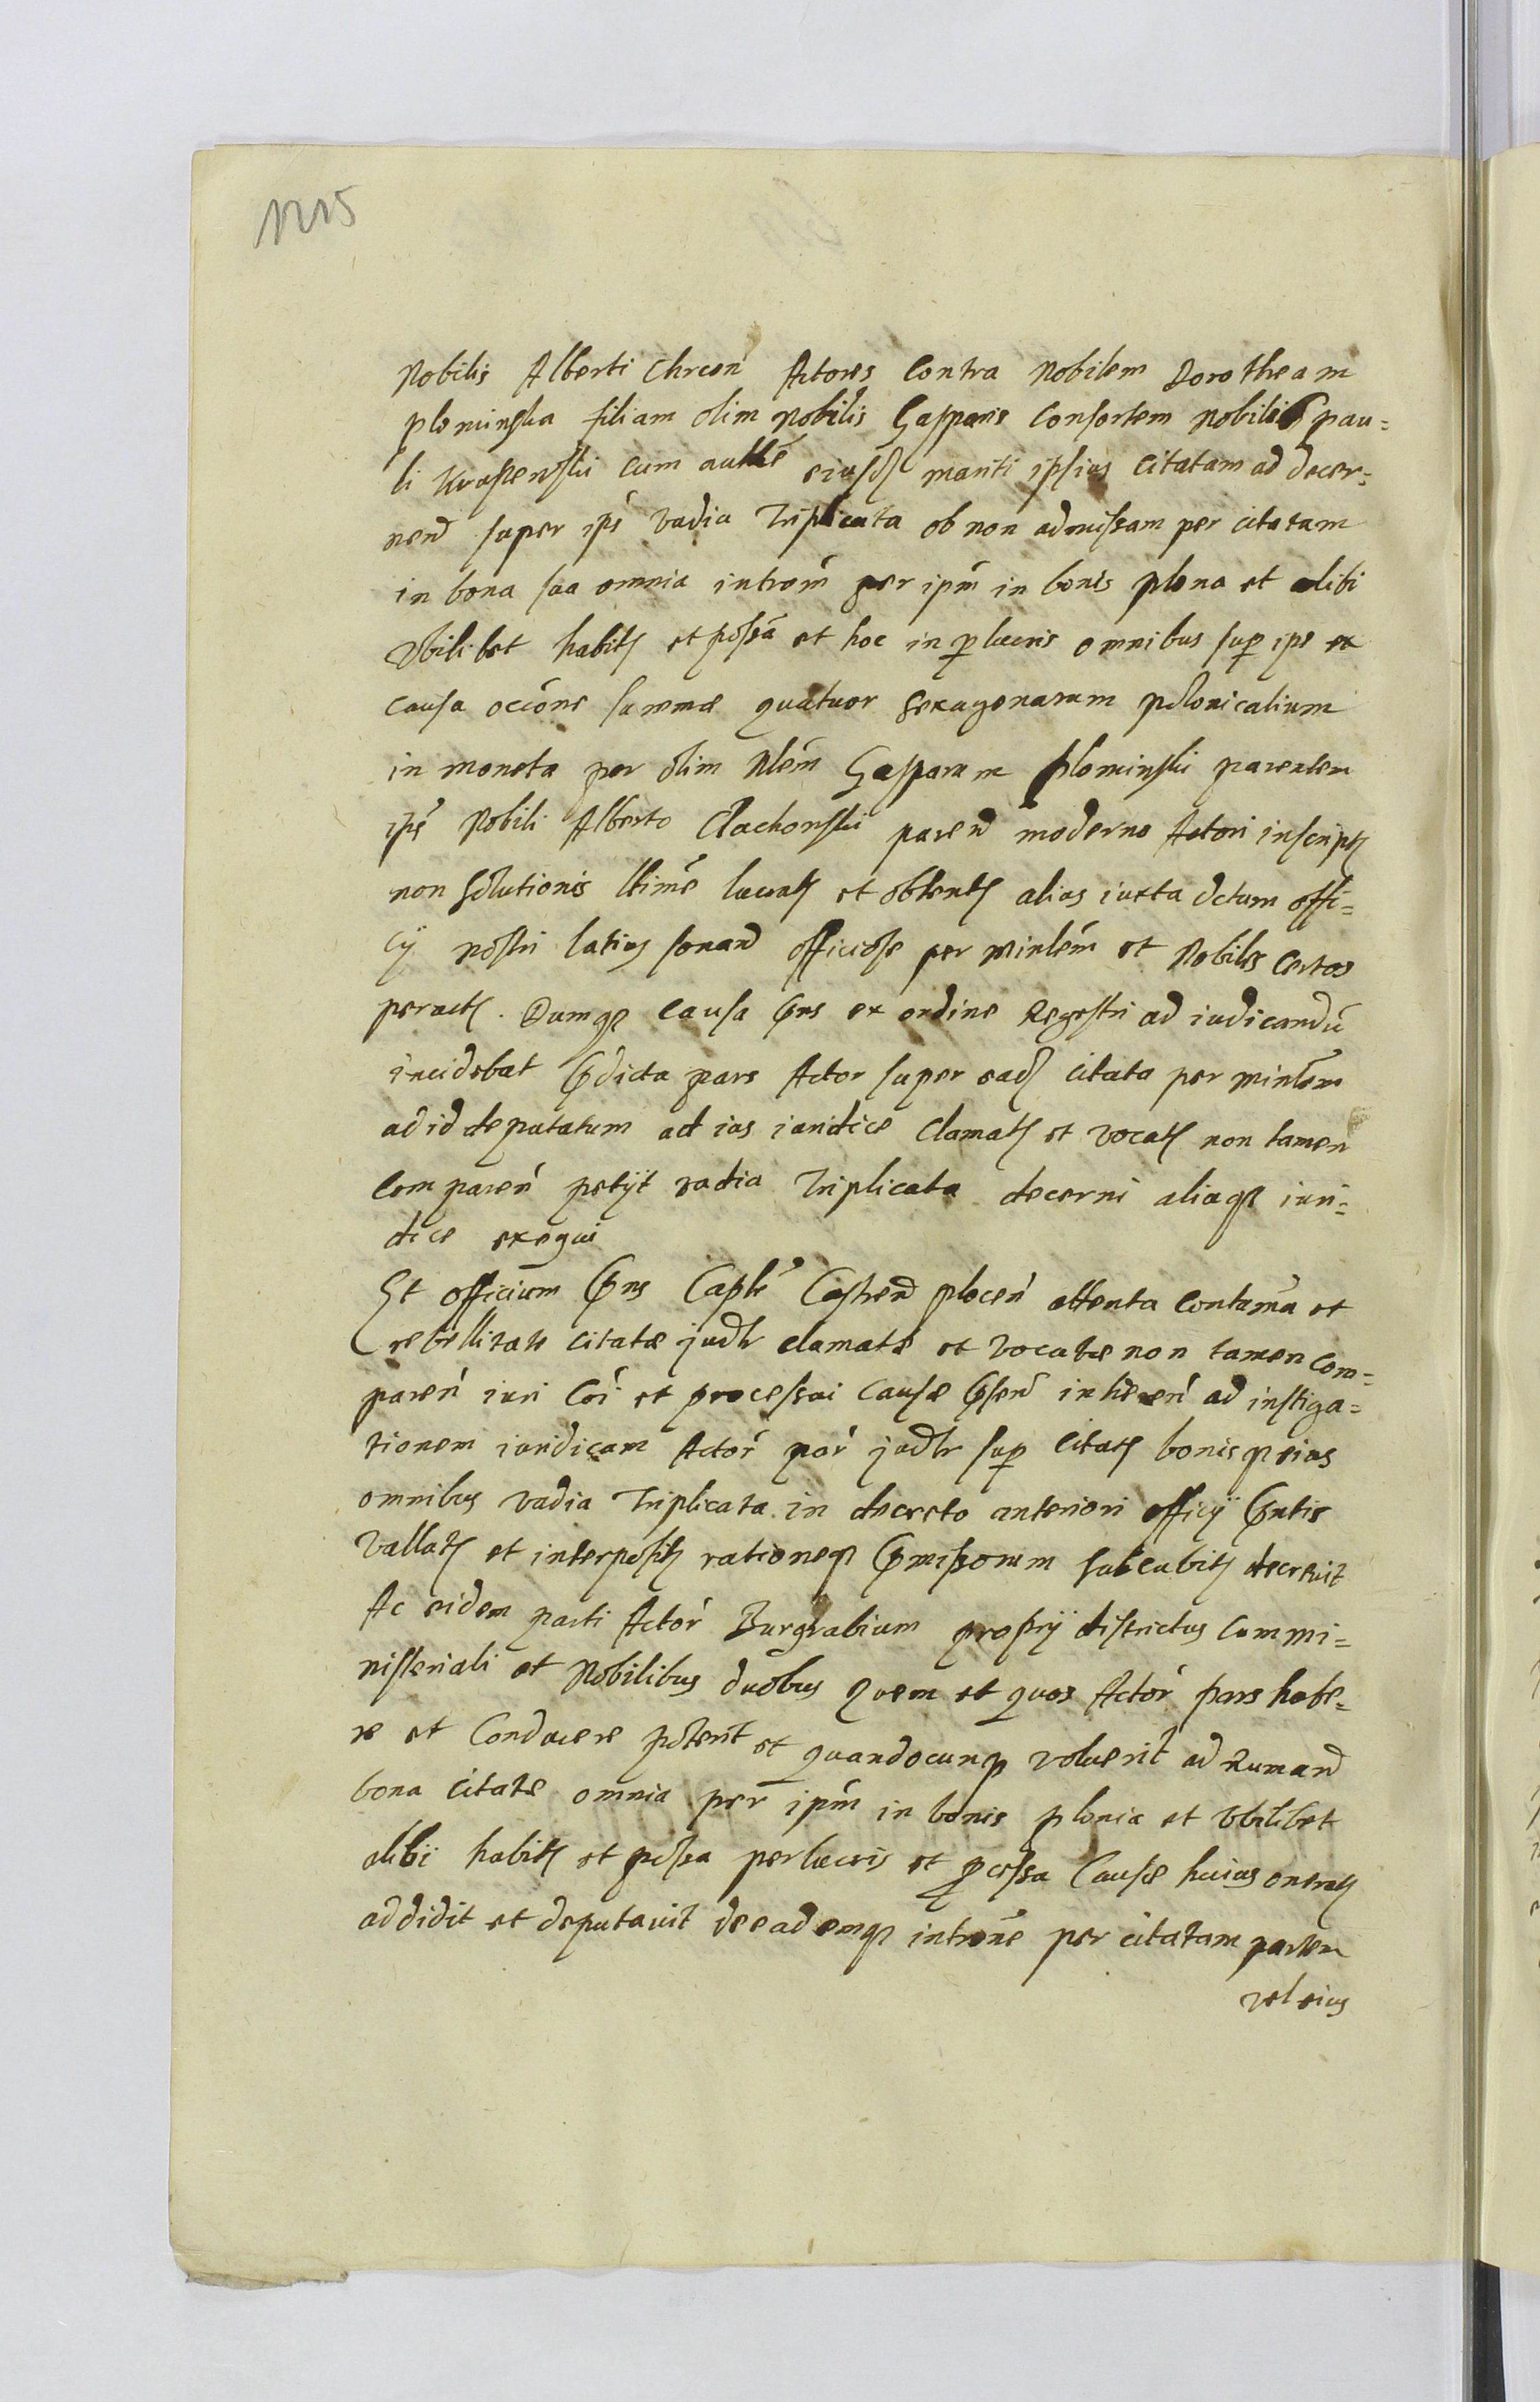 1215
Nobilis Alberti Chrcen Actores Contra Nobilem Dorotheam
plominska filiam olim Nobilis Gasparis Consortem Nobilis pau=
li cum authe eiusd mariti ipsius Citatam ad decer=
nend super ips vadia Triplicata ob non admissam per citatam
in bona sua omnia introm per ipm in bonis plona et alibi
Vbilibet habit et possa et hoc in p lucris omnibus sup ips ex
causa occone summæ quatuor sexagenarum polonicalium
in moneta per olim Nlem Gasparum plominski parentem
ips Nobili Alberto Clachonski paren moderno Actori inscript
non solutionis ltime lucrat et obtent alias iuxta dctum offi=
cij nostri latius sonand officiose per minlem et Nobiles certos
peract. Dumq causa pns ex ordine Regestri ad iudicandu
incidebat pdicta pars Actor super ead citata per minlem
ad id deputatum ad ius iuridice clamat et vocat non tamen
comparen petijt vadia Triplicata decerni aliaq iuri=
dice exequi
Et officium pns Caple Castren plocen attenta contuma et
rebellitate citatæ judlr clamatæ et vocatæ non tamen com=
paren iuri Coi et processui causæ psend inheren ad instiga=
tionem iuridicam Actor por judlr sup Citat bonisq eius
omnibus vadia Triplicata in decreto anteriori officij pntis
vallat et interposit rationeq pmissorum succubit decrevit
Ac eidem parti Actor Burgrabium proprij districtus cum mi=
nisteriali et Nobilibus duobus quem et quos Actor pars habe=
re et Conducere poterit et quandocunq voluerit ad Rumand
bona citatæ omnia per ipm in bonis plonia et vbilibet
alibi habit et possa per lucris et pcessa Causæ huius onerat
addidit et deputavit de eademq introne per citatam partem
vel eius